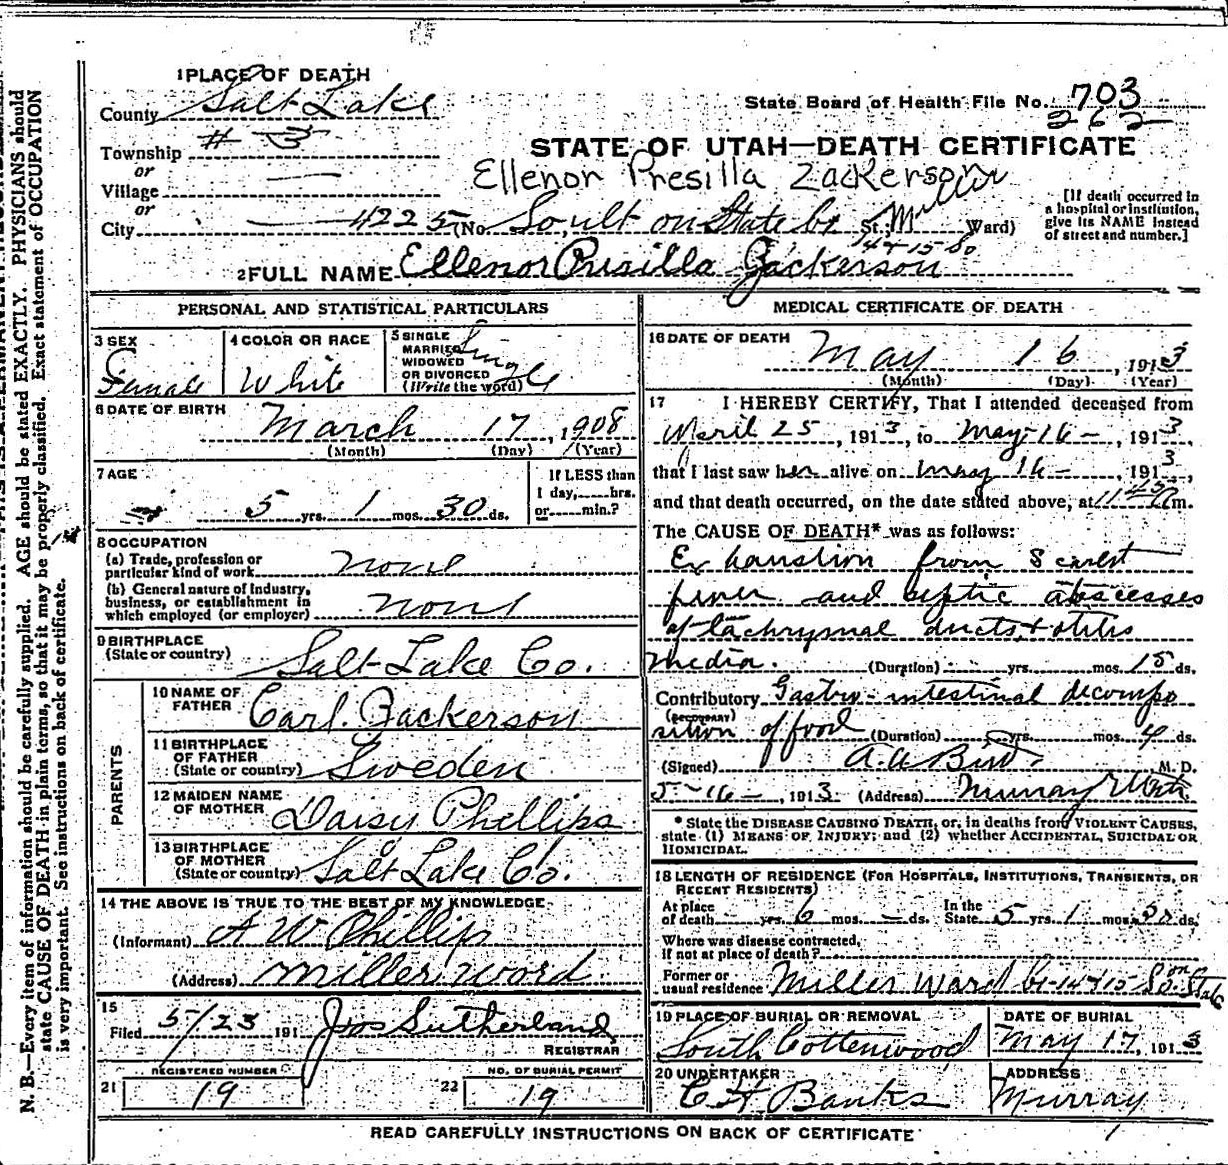 1 PLACE OF DEATH
County Salt Lake
State Board of Health File No. 703
262
Township # 3
or
Village
or
City
STATE OF UTAH—DEATH CERTIFICATE
Ellenor Presilla Zackerson
Miller
4225 (No. So, ult on State be St.; Ward)
14 & 15 So
[If death occurred in
a hospital or institution,
give its NAME instead
of street and number.]
2 FULL NAME Ellenor Prisilla Zackerson
PERSONAL AND STATISTICAL PARTICULARS
3 SEX
Female
4 COLOR OR RACE
White
5 SINGLE
MARRIED
WIDOWED
OR DIVORCED
(Write the word)
Single
6 DATE OF BIRTH
March 17, 1908
(Month) (Day) (Year)
7 AGE
5 yrs. 1 mos. 30 ds.
If LESS than
1 day, hrs.
or min.?
8 OCCUPATION
(a) Trade, profession or
particular kind of work None
(b) General nature of Industry,
business, or establishment in
which employed (or employer) None
9 BIRTHPLACE
(State or country) Salt Lake Co.
PARENTS
10 NAME OF
FATHER Carl. Zackerson
11 BIRTHPLACE
OF FATHER
(State or country) Sweden
12 MAIDEN NAME
OF MOTHER Daisy Phellips
13 BIRTHPLACE
OF MOTHER
(State or country) Salt Lake Co.
14 THE ABOVE IS TRUE TO THE BEST OF MY KNOWLEDGE
(Informant) A W Phillips
(Address) Miller Word
15
Filed 5/23 191 Jos Sutherland
REGISTRAR
REGISTERED NUMBER
21 19
NO. OF BURIAL PERMIT
22 19
MEDICAL CERTIFICATE OF DEATH
16 DATE OF DEATH
May 16, 1913
(Month) (Day) (Year)
17 I HEREBY CERTIFY, That I attended deceased from
April 25, 1913, to May-16-, 1913,
that I last saw her alive on May 16-, 1913,
and that death occurred, on the date stated above, at 11 m.
The CAUSE OF DEATH* was as follows:
Exhaustion from Scarlet
fever and septic abscesses
of lachrymal ducts, + otitis
media. (Duration) yrs. mos. 15 ds.
Contributory Gastro-intestinal decompo
(SECONDARY)
sition of food (Duration) yrs. mos. 4 ds.
(Signed) A. A. Bird M. D.
5-16-, 1913 (Address) Murray Utah
* State the DISEASE CAUSING DEATH, or, in deaths from VIOLENT CAUSES,
state (1) MEANS OF INJURY; and (2) whether ACCIDENTAL, SUICIDAL OR
HOMICIDAL.
18 LENGTH OF RESIDENCE (FOR HOSPITALS, INSTITUTIONS, TRANSIENTS, OR
RECENT RESIDENTS)
At place
of death yrs. 6 mos. ds. In the
State 5 yrs. 1 mos. 30 ds.
Where was disease contracted,
If not at place of death?
Former or
usual residence Miller Ward be-14 & 15 So on State
19 PLACE OF BURIAL OR REMOVAL
South Cottenwood
DATE OF BURIAL
May 17, 1913
20 UNDERTAKER
C H Banks
ADDRESS
Murray
READ CAREFULLY INSTRUCTIONS ON BACK OF CERTIFICATE
N. B.—Every item of information should be carefully supplied. AGE should be stated EXACTLY. PHYSICIANS should
state CAUSE OF DEATH in plain terms, so that it may be properly classified. Exact statement of OCCUPATION
is very important. See instructions on back of certificate.